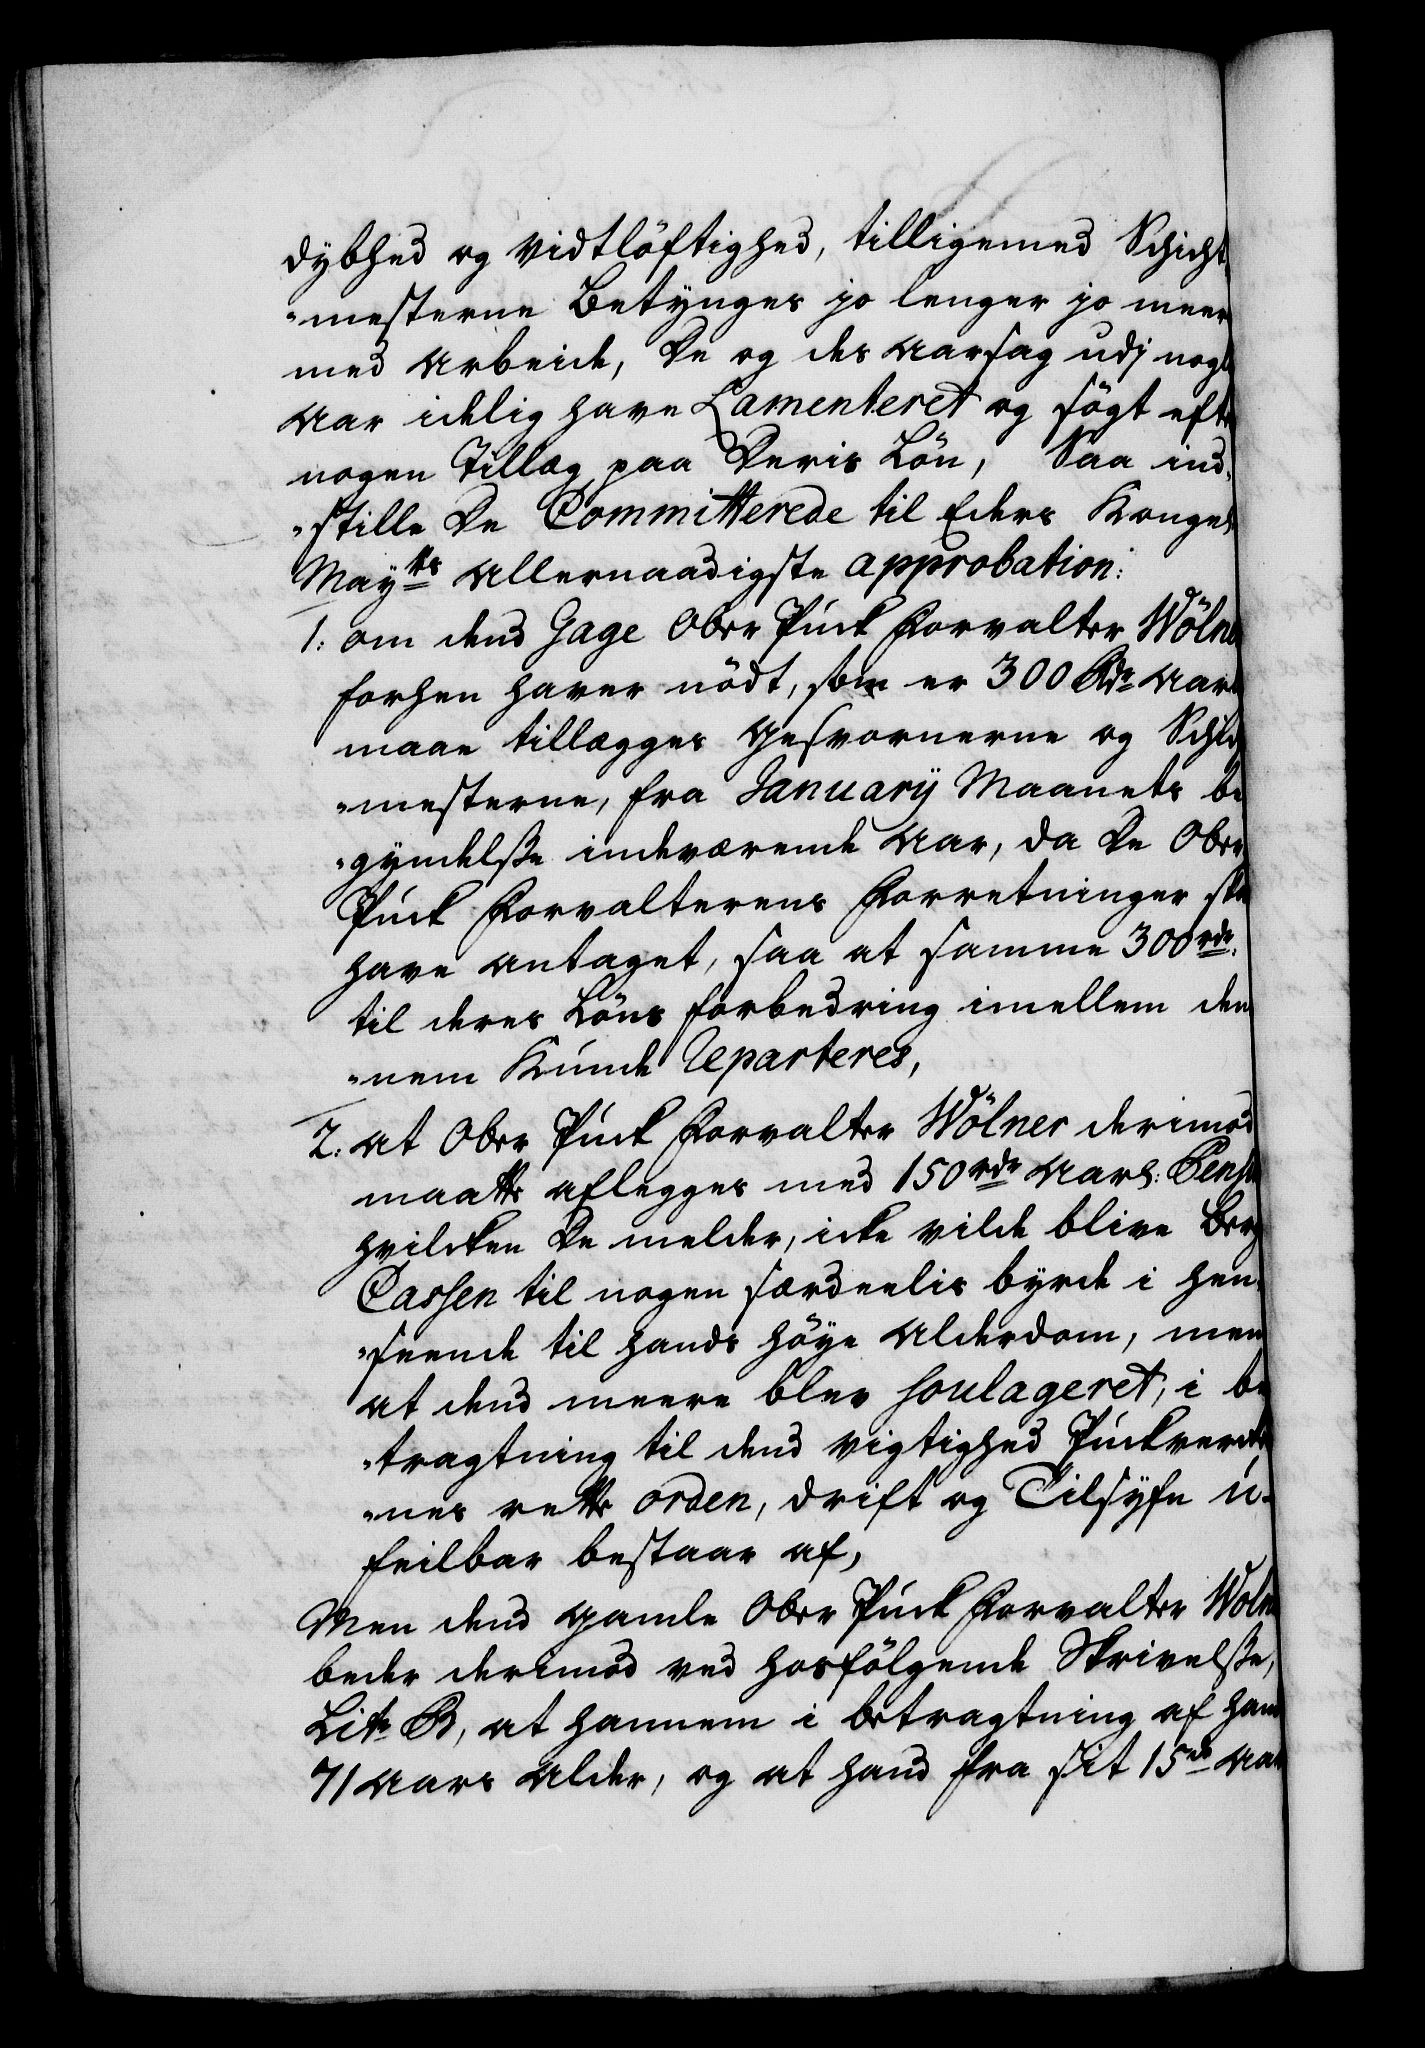 dybhed og vidtlöftighed, tilligemed Schicht¬
"mesterne Betynges jo lenger jo meer
med Arbeide, De og des Aarsag udj nogle
Aar idelig have Lamenteret og sögt efter
nogen Tillæg paa Deris Lön, Saa ind¬
"stille De Committerede til Eders Kongel
Maytts Allernaadigste approbation:
1: om dend Gage Ober Puck Forvalter Wölner
forhen haver nödt, som er 300 Rdr Aarl
maae tillægges Gesvornerne og Schicht
"mesterne, fra Januarij Maanets be
"gyndelsse indeværende Aar, da De Ober
Puck Forvalterens Forretninger skal
have antaget, saa at samme 300 rdr.
til deres Löns forbedring imellem den
"nem Kunde Reparteres,
2: at Ober Puck Forvalter Wölner derimod
maatte aflegges med 150 rdr Aarl: Pension
hvilcken De melder, icke vilde blive Berg
Cassen til nogen særdeelis byrde i hen¬
"seende til hands höye Alderdom, men
at dend meere blev soulageret, i be
"tragtning til dend vigtighed Puckvercker
"nes rette orden, drift og Tilsyfn u¬
feilbar bestaar af,
Men dend gamle Ober Puck Forvalter Wölner
beder derimod ved hosfölgende Skrivelsse,
Litr B, at hannem i betragtning af hans
71 Aars Alder, og at hand fra sit 15de Aar